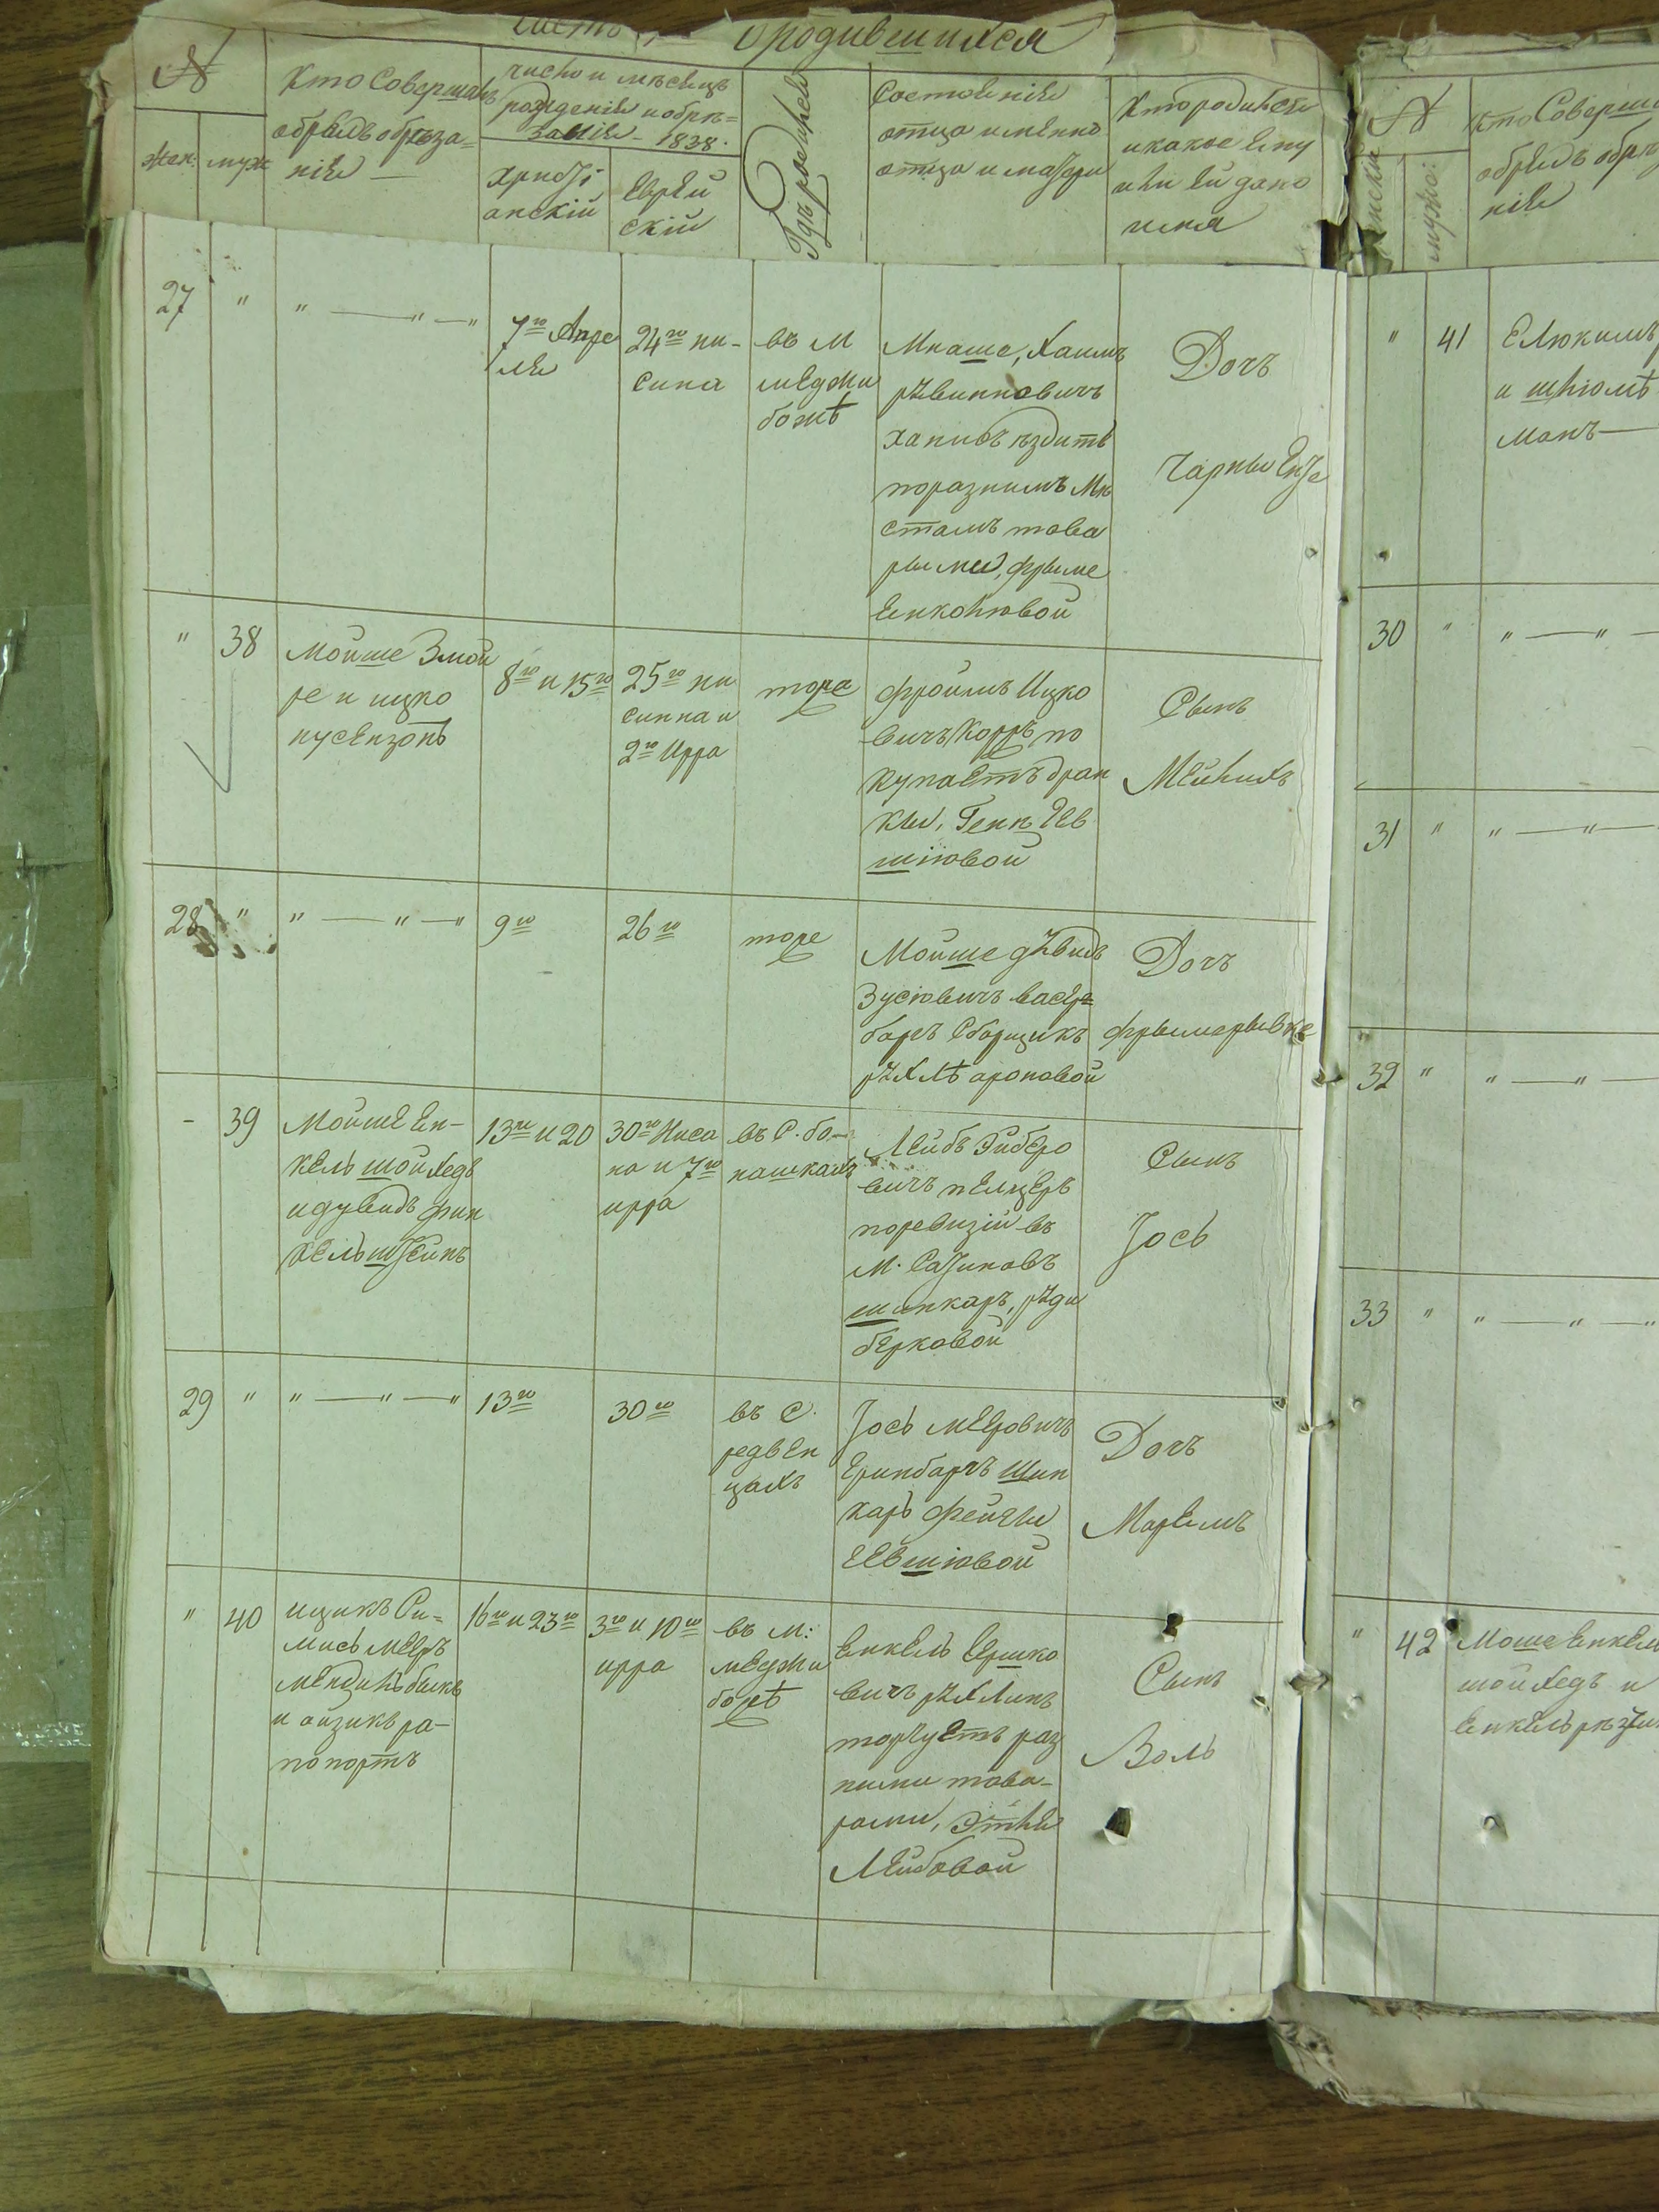 Часть I о родившихся
№
жен: муж
Кто Совершалъ
обрядъ обрѣза=
нія —
число и мѣсяцъ
рожденія и обрѣ=
занія - 1838.
Христі
анскій
Еврей
скій
Гдѣ родился
Состояніе
отца и имена
отца и матери
Кто родился
и какое ему
или ей дано
имя
27 " " — " — "
7го Апре
ля
24го ни-
сина
въ М
Меджи
божѣ
Мнаше, Хаимъ
ханисъ ѣздитъ
поразнимъ Мѣ
стамъ това
рыми, фрыме
Енколювой
Дочъ
Чарны Енте
" 38
Мойше Змой
ре и ицко
нусензонъ
8го и 15го
25го ни
синна и
2го Ирра
тоже
Фроимъ Ицко
вичъ Корръ по
купаетъ бран
ки, Генѣ Гев
шіовой
Сынъ
Мейлихъ
28 " " — " — "
9го
26го
тоже
Мойше дувидъ
Зусіовичъ васер
баръ Сборщикъ
рухлѣ ароновой
Дочъ
фрымерывке
- 39
Мойше Ен-
кель шойхедъ
и дувидъ фин
кельштейнъ
13го и 20
30го Ниса
на и 7го
ирра
въ С. Го-
пашкахъ
Лейбъ
вичъ пелцеръ
поревизіи въ
М. Сатиновъ
шинкаръ, руди
берковой
Сынъ
Іось
29 " " — " — "
13го
30го
въ С.
редвен
цахъ
Іось Меровичъ
Гринбаръ Шин
каръ фейги
Гевшіовой
Дочъ
Маріемъ
" 40
ицикъ Си-
мись меръ
мендилъ быкъ
и айзикъ ра-
попортъ
16го и 23го
3го и 10го
ирра
въ М:
Меджи
божѣ
Енкель Гершко
вичъ рухлинъ
торгуетъ раз
ними това-
рами, Этли
Лейбовой
Сынъ
Волъ
№
женски
мужс:
Кто Соверш
обрядъ обрѣ
нія
" 41
Елюкимъ
и шліомѣ
манъ —
30 " " — " —
31 " " — " —
32 " " — " —
33 " " — " — "
" 42
Моше Енкель
шойхедъ и
Енкель